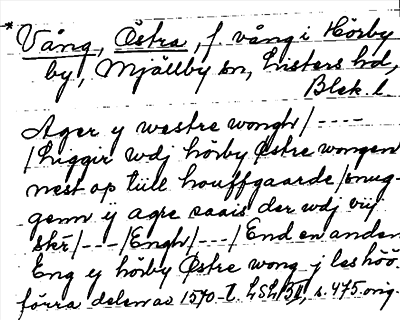 * Vång, Östra, f. vång i Hörby
by, Mjällby sn, Listers hd,
Blek. l.
Ager y westre wongh/----
/Liggir wdj hörby Østre wongen
nest op tiill houffgaarde/snug-
genn ÿ agre caais der wdj viij
skr/---/Engh/---/End en anden
Eng y hörby Østre wong j les höö.
förra delen av 1570-t. LSL 5, s. 475. orig.